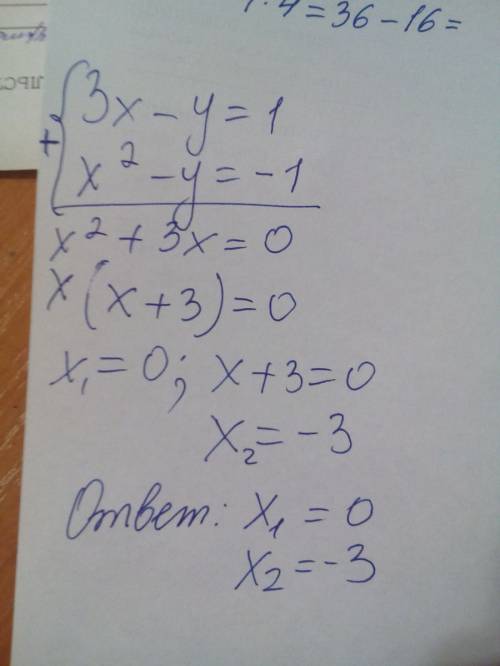 · 4 = 36 - 16 =
+ { 3x - y = 1
x² - y = -1
x² + 3x = 0
x(x + 3) = 0
x₁ = 0; x + 3 = 0
x₂ = -3
Ответ: x₁ = 0
x₂ = -3